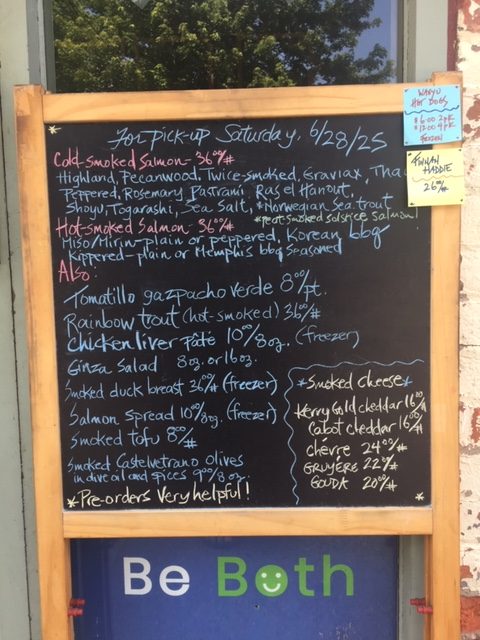 For pick-up Saturday, 6/28/25
Cold-smoked salmon- 36⁰⁰/#
Highland, Pecanwood, Twice-smoked, Graviax, Thai
Peppered, Rosemary Pastrami, Ras el Hanout,
Shoyu, Togarashi, Sea Salt, *Norwegian Sea trout
*peat-smoked solstice salmon!
Hot-smoked Salmon- 36⁰⁰/#
Miso/Mirin-plain or peppered, Korean bbq
Kippered-plain or Memphis bbq seasoned
Also:
Tomatillo gazpacho verde 8⁰⁰/pt.
Rainbow trout (hot-smoked) 36⁰⁰/#
chicken liver pâté 10⁰⁰/8oz. (freezer)
Ginza Salad 8oz. or 16oz.
Smoked duck breast 36⁰⁰/# (freezer)
Salmon spread 10⁰⁰/8oz. (freezer)
Smoked tofu 8⁰⁰/#
Smoked Castelvetrano olives
in olive oil and spices 9⁰⁰/8oz.
*Pre-orders Very helpful! *
*Smoked cheese*
Kerrygold cheddar 16⁰⁰/#
Cabot cheddar 16⁰⁰/#
chévre 24⁰⁰/#
GRUYERE 22⁰⁰/#
GOUDA 20⁰⁰/#
WAGYU
HOT DOGS
$6.00 2pk
$12.00 4pk
FROZEN
FINNAN
HADDIE
26⁰⁰/#
Be Both